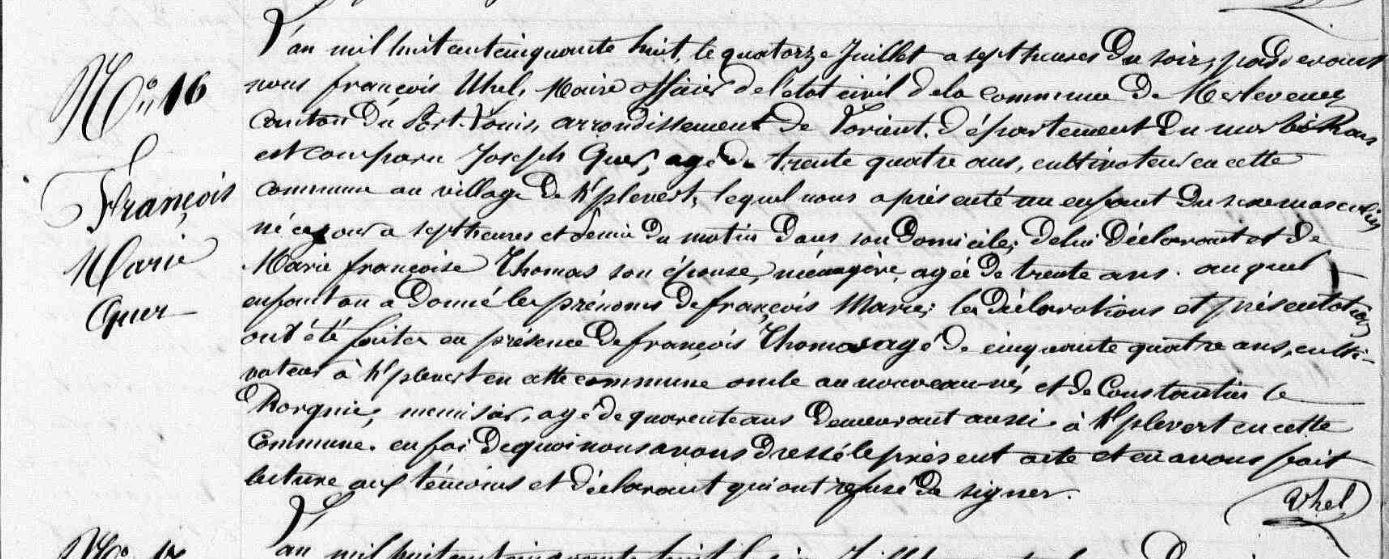 N° 16
François
Marie
Quer
L'an mil huit cent cinquante huit, le quatorze Juillet a sept heures du soir, par devant
nous françois Uhel, Maire officier de l'état civil de la commune de Merlevenez
canton du Port-Louis, arrondissement de Lorient, département du morbihan
est comparu Joseph Quer, agé de trente quatre ans, cultivateur en cette
commune au village de K/plevert, lequel nous a présenté un enfant du sexe masculin
né ce jour a sept heures et demie du matin dans son domicile; de lui déclarant et de
Marie françoise Thomas son épouse, ménagère, agée de trente ans. auquel
enfant on a donné les prénoms de françois Marie; les déclarations et présentation
ont été faites en présence de françois Thomas agé de cinquante quatre ans, culti-
vateur à K/plevert en cette commune oncle au nouveau né, et de Constantin le
Rorgnié, menisier, agé de quarente ans demeurant aussi à K/plevert en cette
Commune. en foi de quoi nous avons dressé le présent acte et en avons fait
lecture aux témoins et déclarant qui ont refusé de signer.
Uhel
N° 17
L'an mil huit cent cinquante huit le Juillet